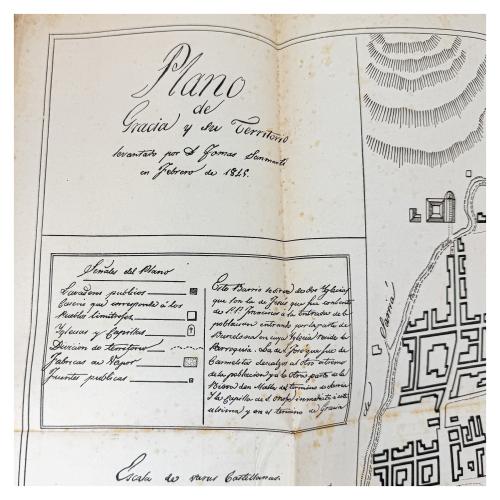 Plano
de
Gracia y su Territorio
levantado por D. Tomas Sanmartí
en Febrero de 1845.
Señales del Plano
Lavaderos publicos
Caserio que corresponde á los
Pueblos limitrofes
Yglesias y Capillas
Division de territorio
Fabricas de Vapor
Fuentes publicas
Este Barrio se sirve de dos Yglesias
que son la de Jesus que fue convento
de P.P. Franciscos a la entrada de la
poblacion entrando por la parte de
Barcelona en cuya Yglesia reside la
Parroquia. La de José que fue de
Carmelitas descalzos al otro extremo
de la poblacion y a la otra parte de la
Riera den Malla del termino de Sarria
Y la Capilla de inmediata á esta
ultima y en el termino de Gracia
Sarriá
Escala de varas Castellanas.